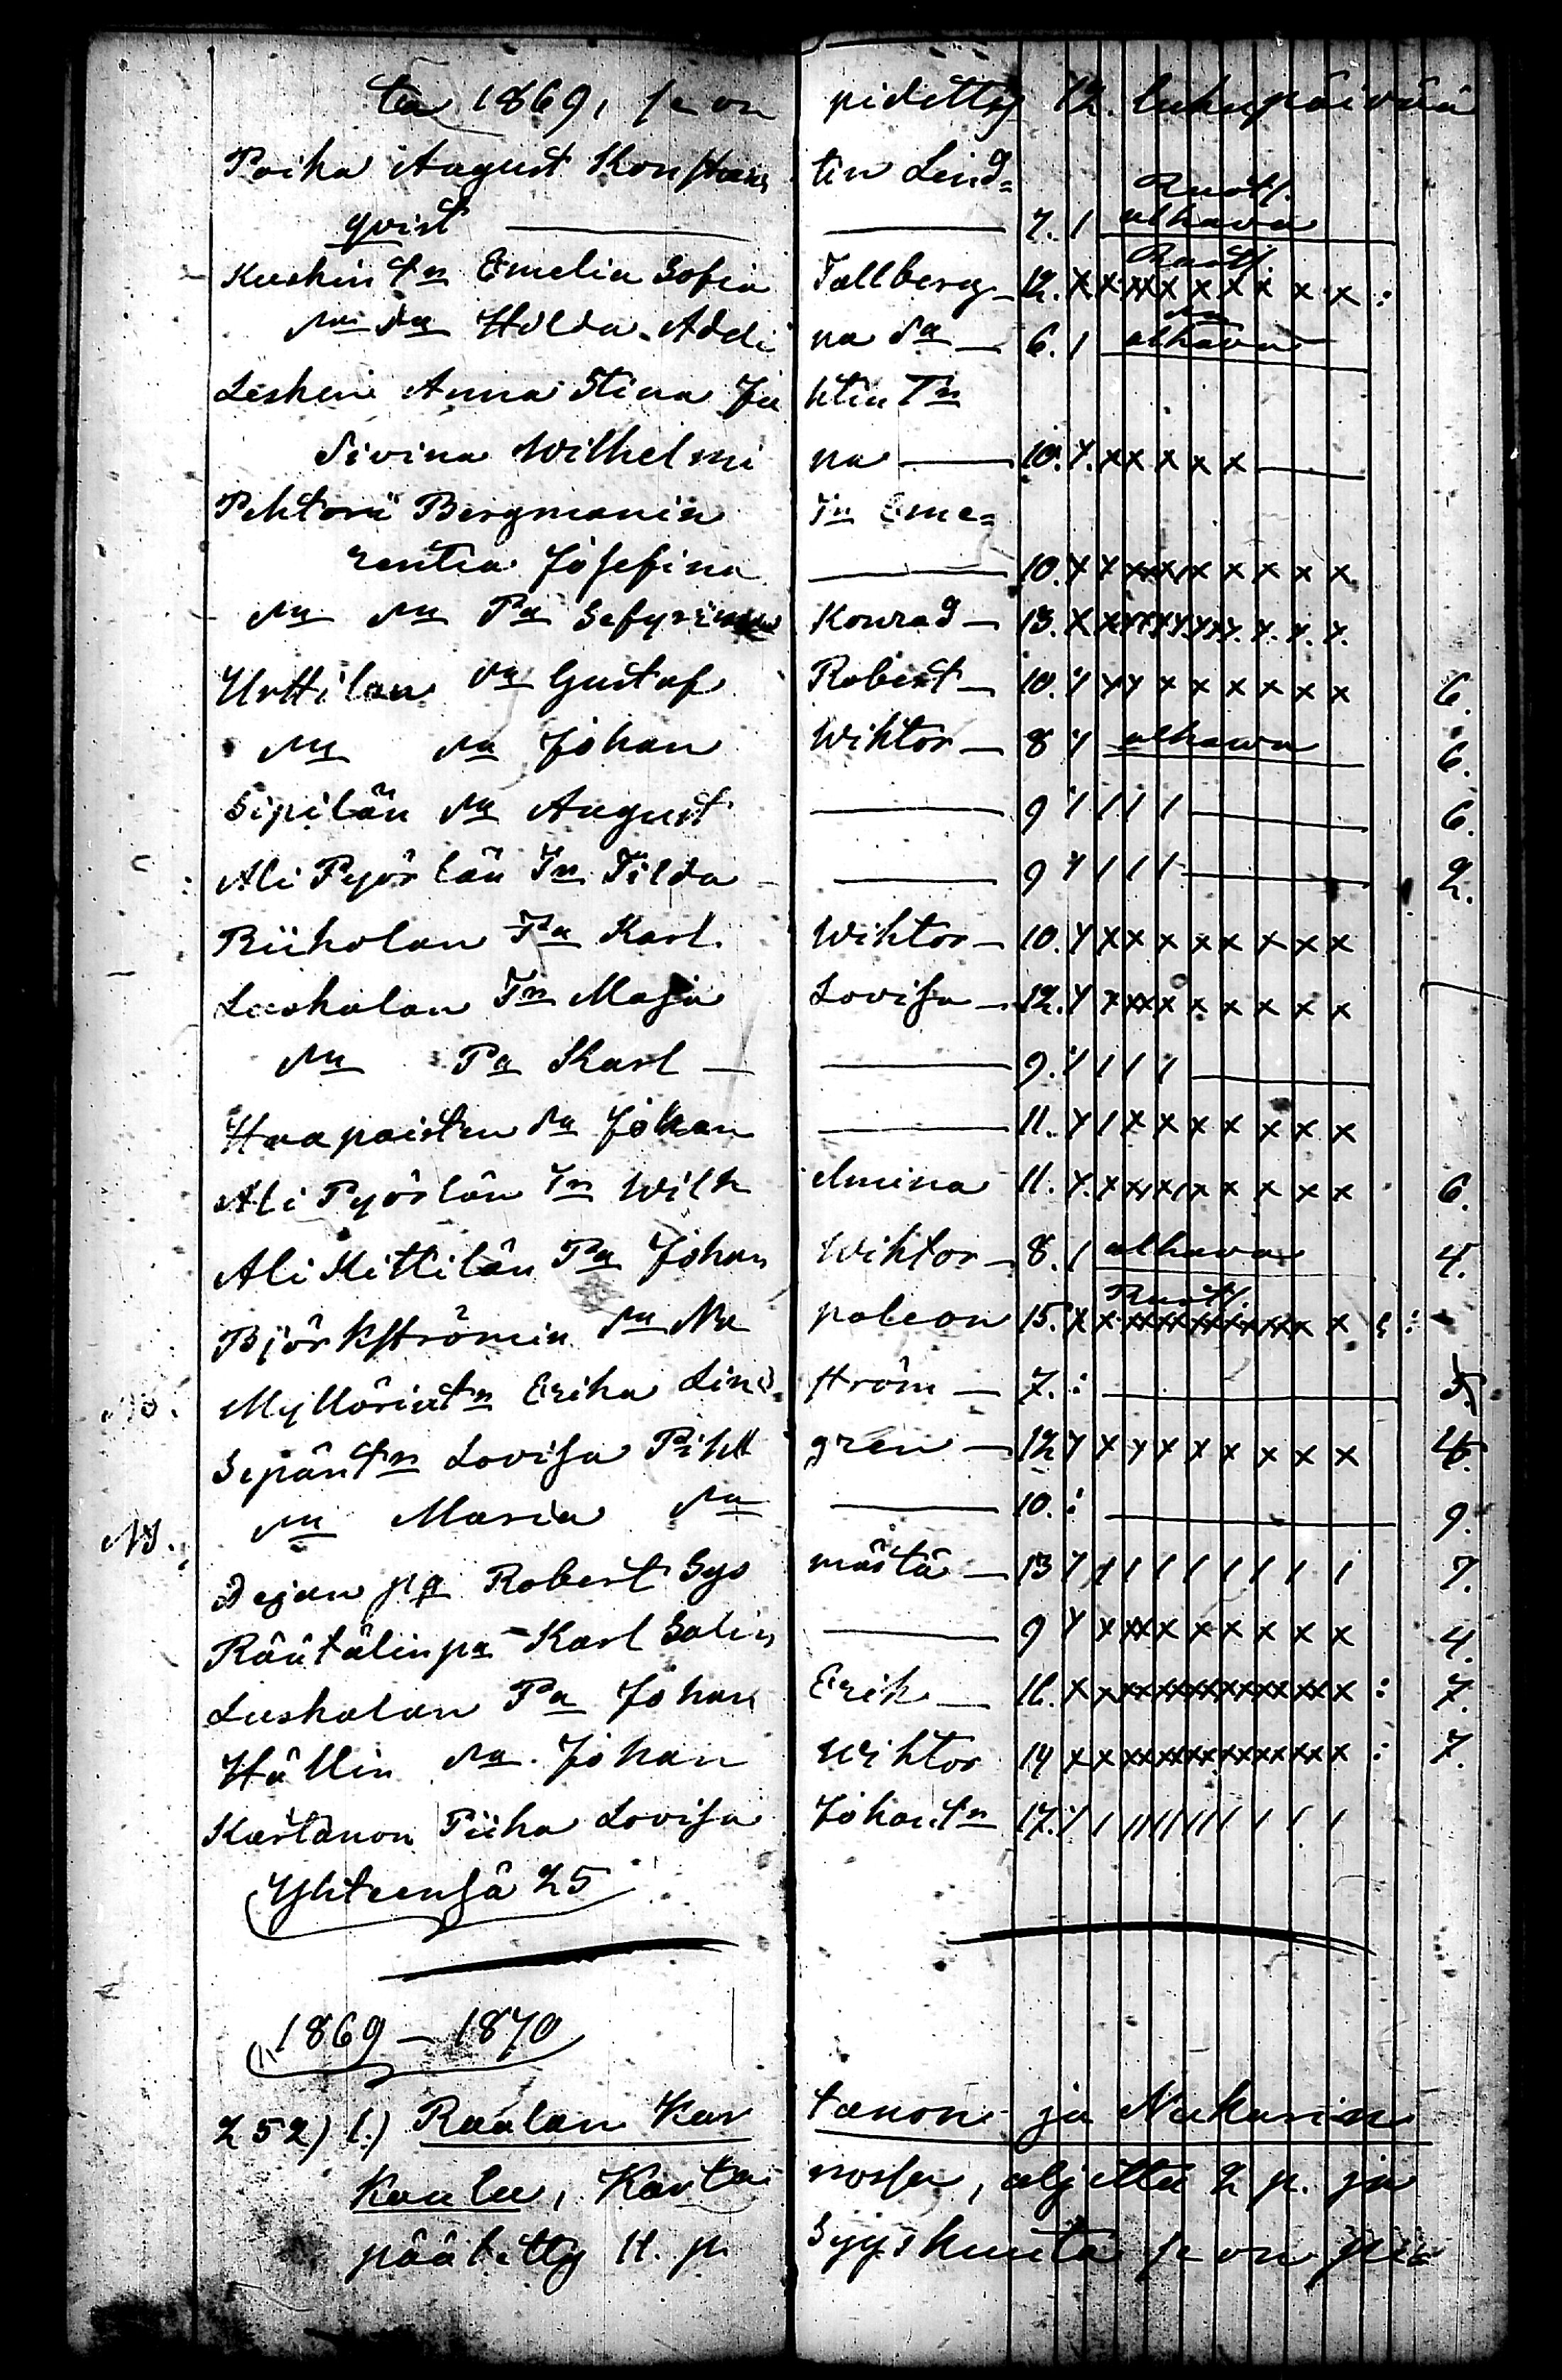 ta 1869, se on pidetty 12. lukupäivää
Poika August Konstan tin Lind=
Ruots.
qvist — 7. / alkava
Ruots.
Kuskin tr Emelia Sofia Tallberg — 12. x x xx x x x x x x :
na da Hilda Addi na da — 6. / alkava
Lesken Anna Stina Ju htin Tr
Sivina Wilhelmi na — 10. y. x x x x x —
Pehtorii Bergmanin Tr Eme=
rentia Josefina — 10. y y xx x x x x x x
da da Pa Sefyrinus Konrad — 13. x x y y y y y y y. y. y. y.
Urttilan da Gustaf Robert — 10. y y y x x x x x x 6.
da da Johan Wiktor — 8 y alkawa 6.
Sipilän da August — 9 / / / / — 6.
Ali Pyörlän Tr Tilda — 9 y / / / — 2.
Riiholan Pa Karl. Wiktor — 10. y x x x x x x x x
Luskalan Tr Maja Lovisa — 12. y x xx x x x x x x
da Pa Karl — 9. y / / / —
Haapaisten da Johan — 11. y / x x x x x x x
Ali Pyörlän Tr Wilh elmina 11. y. x x x x x x x x 6.
Ali Kittilän Pa Johan Wiktor — 8. / alkava 4.
Ruots.
Björkströmin da Na poleon 15. x x xxxxxxxxxx x :
Myllärin tr Erika Lind= ström — 7. : — 5.
Sepän tr Lovisa Pihl gren — 12 y x y x x x x x x 4.
da Maria da — 10. : — 9.
Dejan pa Robert Sys mästä — 13 y / / / / / / / / 7.
Räätälin pa Karl Salin — 9 y x xx x x x x x x 4.
Luskalan Pa Johan Erik — 16. x x xxxxxxxxxxxx x : 7.
Hällin da. Johan Wiktor 14 x x xxxxxxxxxxxx x : 7.
Kartanon Piika Lovisa Johan tr 17. y / / / / / / / / / /
Yhteensä 25
1869 — 1870
252) 1.) Raalan Kar tanon ja Nukarin
Koulu, Karta nossa, aljettu 2 p. ja
päätetty 11. p. Syyskuuta se on pii